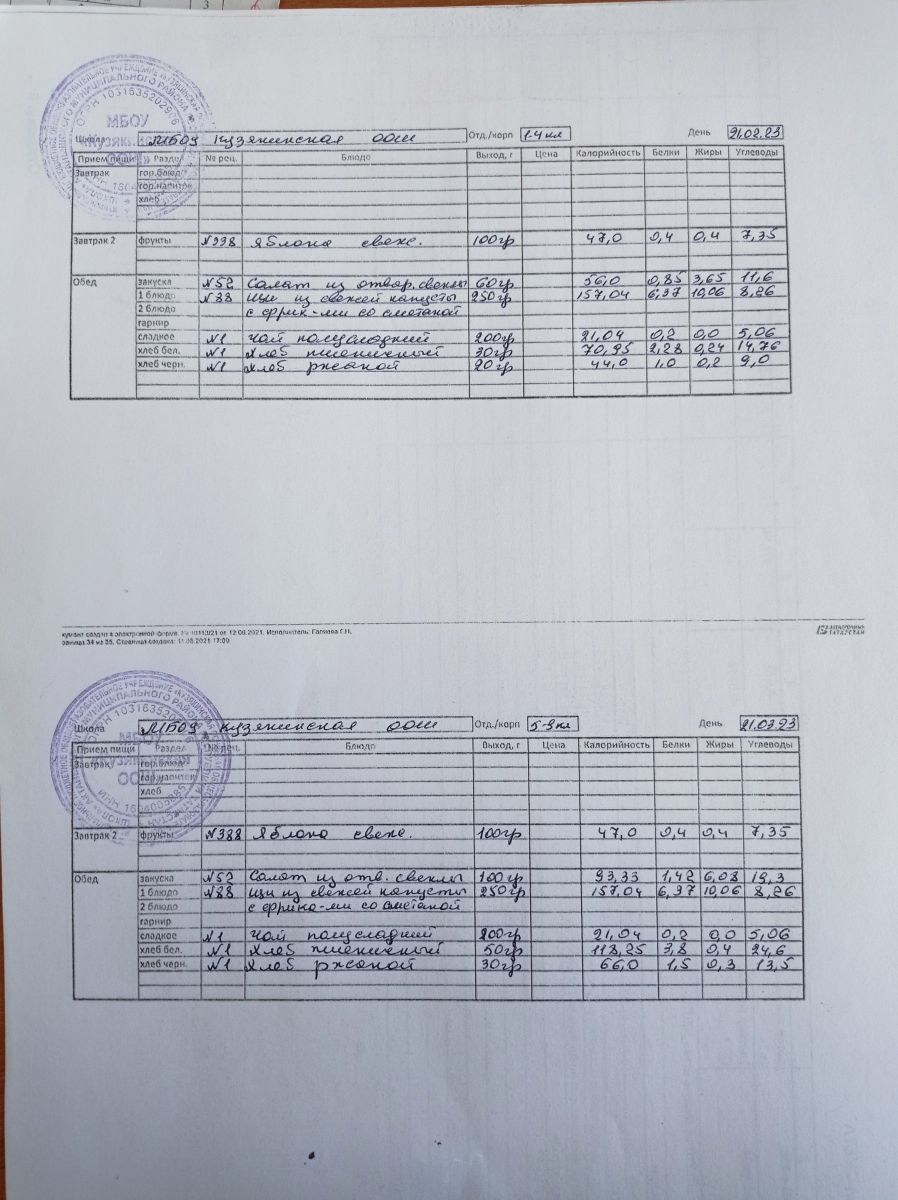 Школа МБОУ Кузякинская ООШ Отд./корп 1-4 кл День 21.02.23
Прием пищи Раздел № рец. Блюдо Выход, г Цена Калорийность Белки Жиры Углеводы
Завтрак гор.блюдо
гор.напиток
хлеб
Завтрак 2 фрукты №338 Яблоко свеж. 100гр 47,0 0,4 0,4 7,35
Обед закуска №52 Салат из отвар. свеклы 60гр 56,0 0,85 3,65 11,6
1 блюдо №88 Щи из свежей капусты 250гр 157,04 6,37 10,06 8,26
2 блюдо с фрик-ми со сметаной
гарнир
сладкое №1 Чай полусладкий 200гр 21,04 0,2 0,0 5,06
хлеб бел. №1 Хлеб пшеничный 30гр 70,95 2,28 0,24 14,76
хлеб черн. №1 Хлеб ржаной 20гр 44,0 1,0 0,2 9,0
МБОУ
«Кузякинская
ООШ»
ОГРН 1031635202976
кумент создан в электронной форме. № 10113/21 от 12.08.2021. Исполнитель: Галиева Г.Н.
раница 34 из 35. Страница создана: 11.08.2021 17:00
ЭЛЕКТРОННЫЙ
ТАТАРСТАН
Школа МБОУ Кузякинская ООШ Отд./корп 5-9 кл День 21.02.23
Прием пищи Раздел № рец. Блюдо Выход, г Цена Калорийность Белки Жиры Углеводы
Завтрак гор.блюдо
гор.напиток
хлеб
Завтрак 2 фрукты №388 Яблоко свеж. 100гр 47,0 0,4 0,4 7,35
Обед закуска №52 Салат из отв. свеклы 100гр 93,33 1,42 6,08 19,3
1 блюдо №88 Щи из свежей капусты 250гр 157,04 6,37 10,06 8,26
2 блюдо с фрика-ми со сметаной
гарнир
сладкое №1 Чай полусладкий 200гр 21,04 0,2 0,0 5,06
хлеб бел. №1 Хлеб пшеничный 50гр 118,25 3,8 0,4 24,6
хлеб черн. №1 Хлеб ржаной 30гр 66,0 1,5 0,3 13,5
МБОУ
«Кузякинская
ООШ»